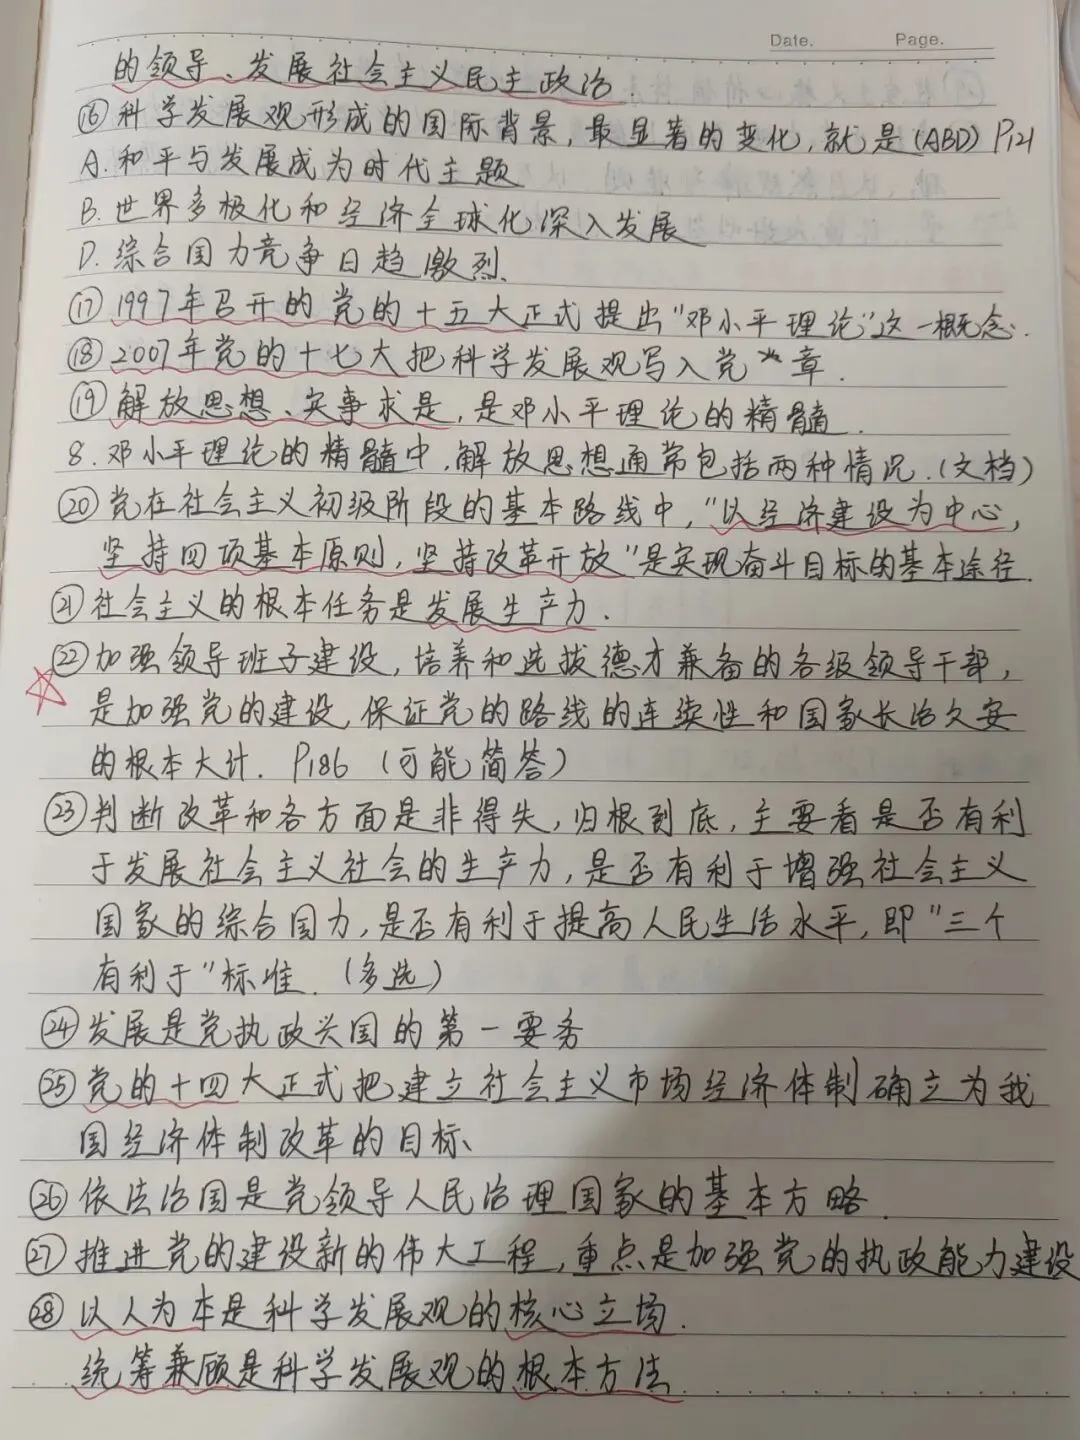 Date. Page.
的领导、发展社会主义民主政治.
⑯科学发展观形成的国际背景,最显著的变化,就是(ABD) P121
A.和平与发展成为时代主题
B.世界多极化和经济全球化深入发展
D.综合国力竞争日趋激烈.
⑰1997年召开的党的十五大正式提出"邓小平理论"这一概念.
⑱2007年党的十七大把科学发展观写入党章.
⑲解放思想、实事求是,是邓小平理论的精髓.
8.邓小平理论的精髓中,解放思想通常包括两种情况.(文档)
⑳党在社会主义初级阶段的基本路线中,"以经济建设为中心,
坚持四项基本原则,坚持改革开放"是实现奋斗目标的基本途径.
㉑社会主义的根本任务是发展生产力.
㉒加强领导班子建设,培养和选拔德才兼备的各级领导干部,
是加强党的建设,保证党的路线的连续性和国家长治久安
的根本大计. P186 (可能简答)
㉓判断改革和各方面是非得失,归根到底,主要看是否有利
于发展社会主义社会的生产力,是否有利于增强社会主义
国家的综合国力,是否有利于提高人民生活水平,即"三个
有利于"标准.(多选)
㉔发展是党执政兴国的第一要务
㉕党的十四大正式把建立社会主义市场经济体制确立为我
国经济体制改革的目标、
㉖依法治国是党领导人民治理国家的基本方略.
㉗推进党的建设新的伟大工程,重点是加强党的执政能力建设
㉘以人为本是科学发展观的核心立场.
统筹兼顾是科学发展观的根本方法.